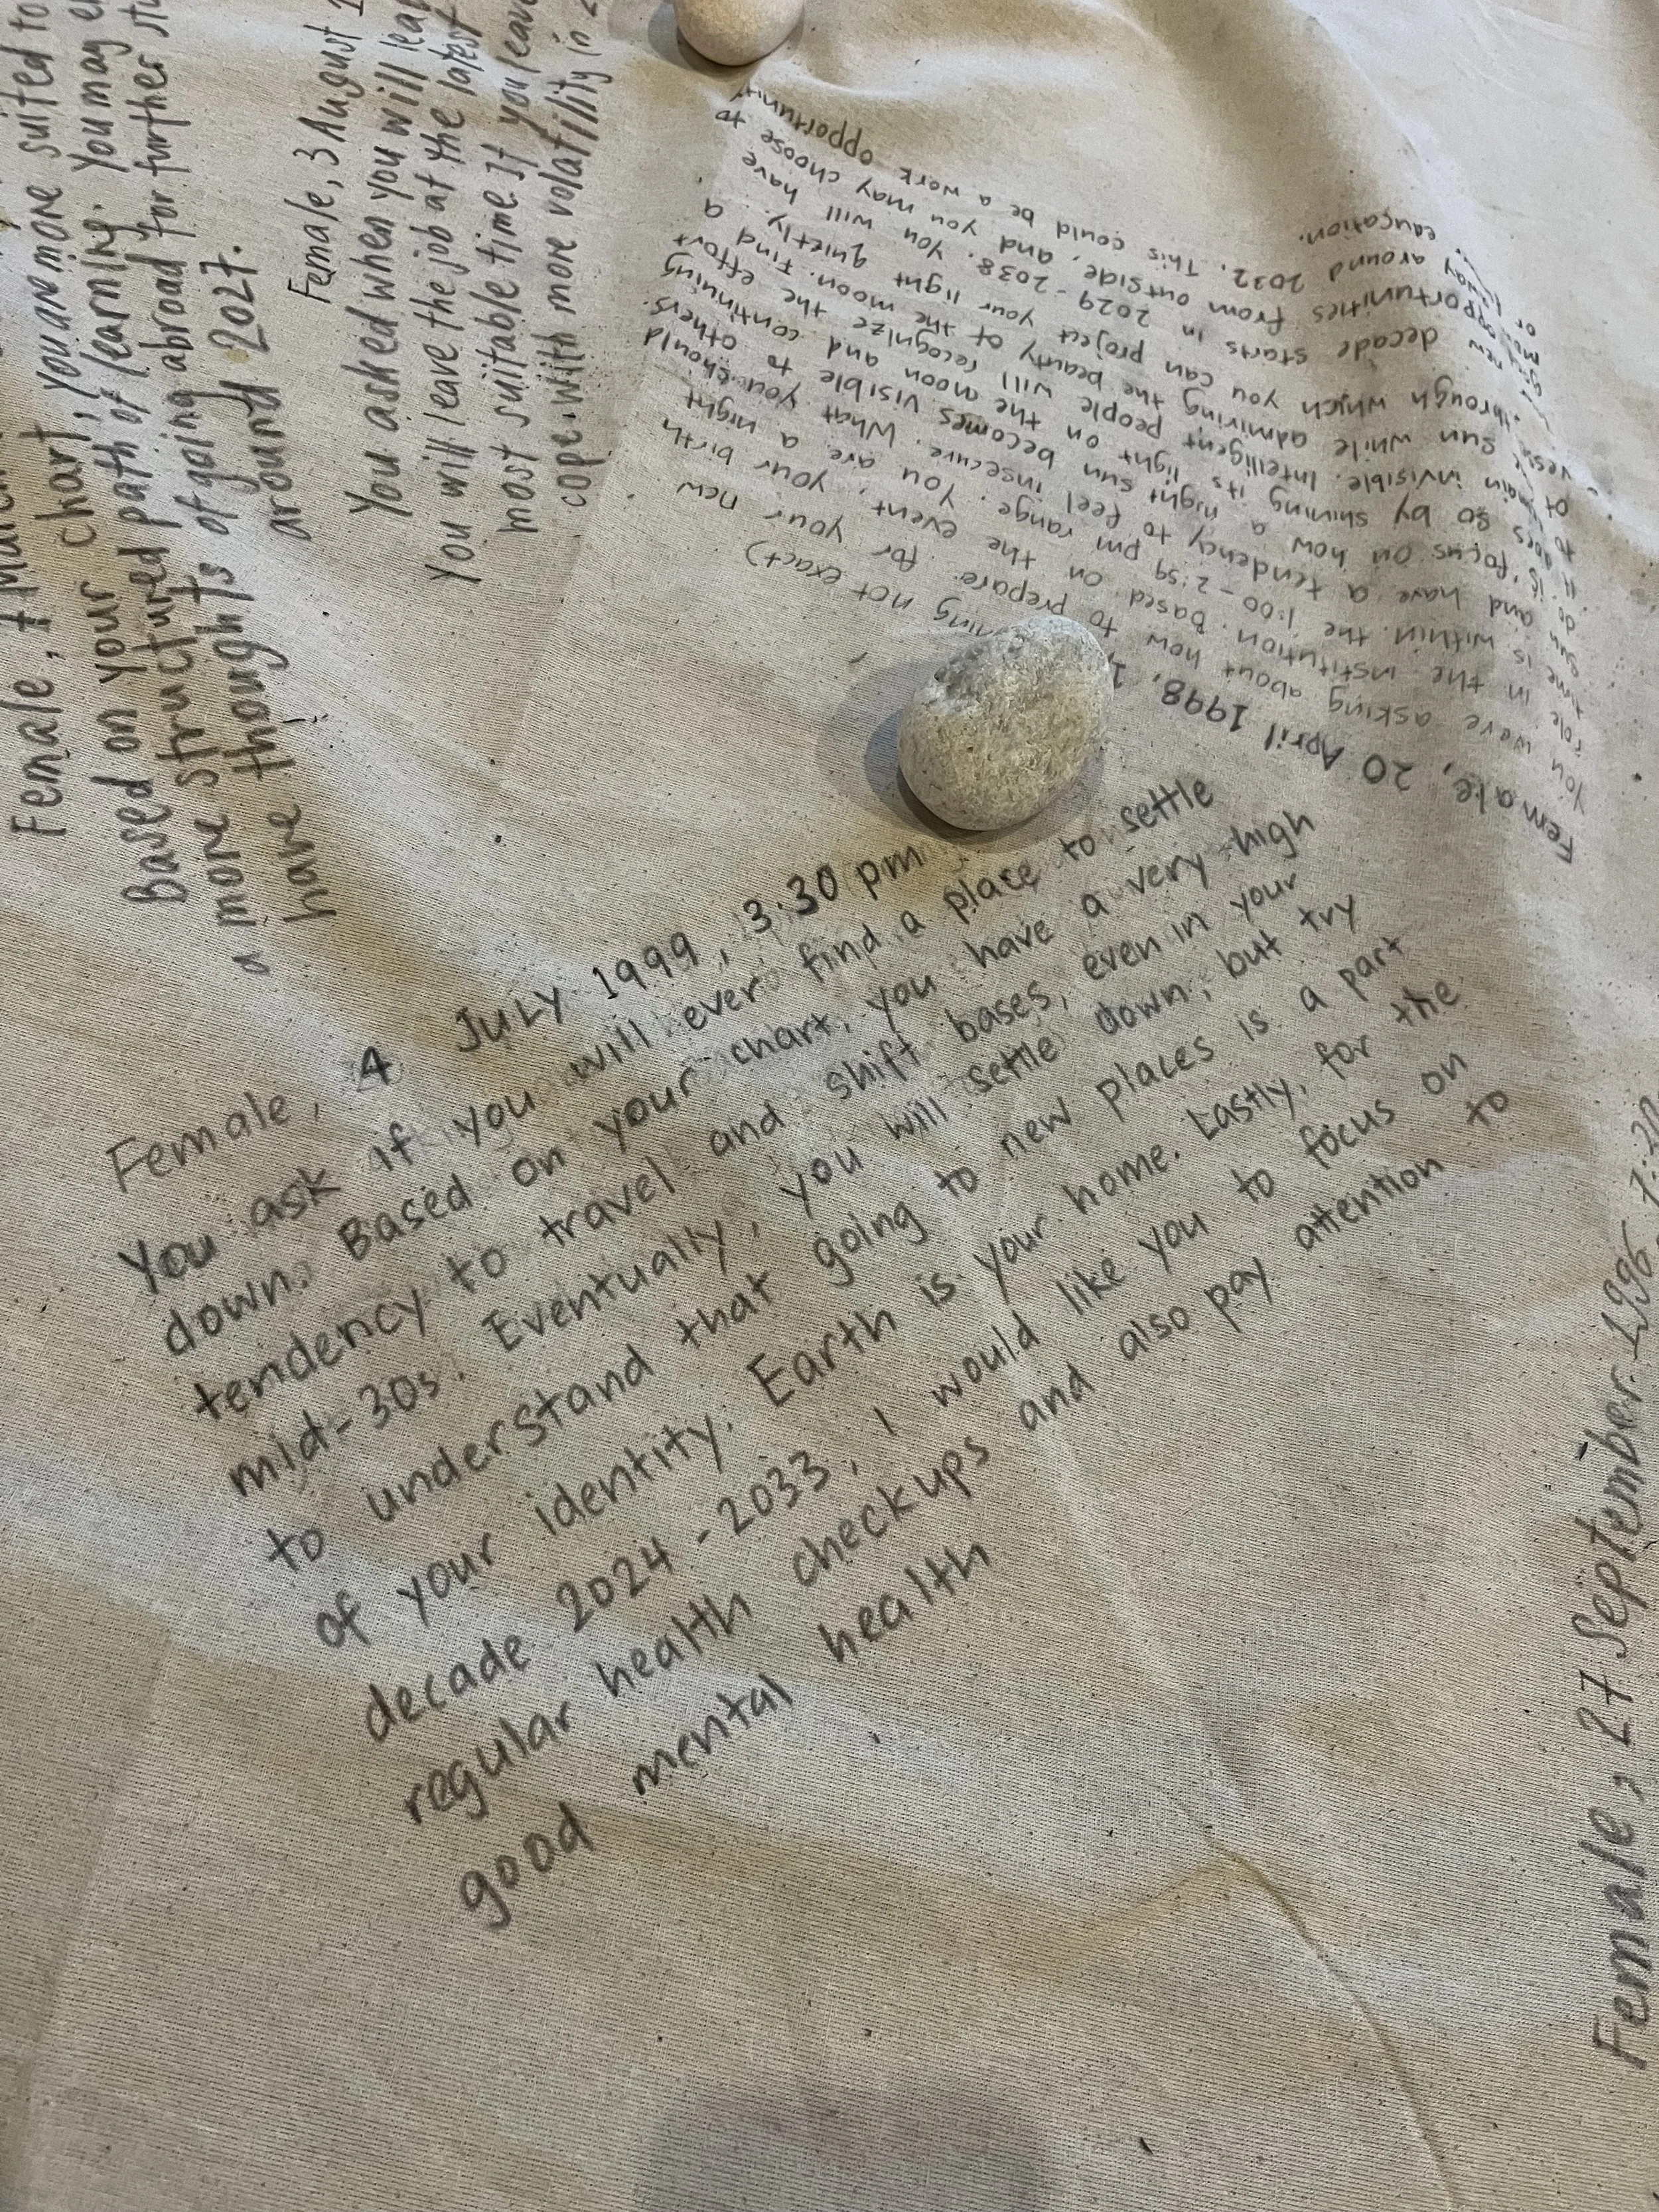 suited to
Female,
Based on your chart, you are more
a more structured path of learning. You may
have thoughts of going abroad for further
around 2027.
Female, 3 August
You asked when you will
You will leave the job at the latest
most suitable time. If you leave
cope with more volatility in
Female, 20 April 1998,
not exact)
You were asking about how to prepare for your new
role in the institution. Based on the event, your birth
time is within the 1:00 - 2:59 pm range. You are a night
sun and have a tendency to feel insecure. What you should
do is focus on how a night sun becomes visible to others.
It does so by shining its light on the moon and continuing
to remain invisible. Intelligent people will recognize the effort
of sun while admiring the beauty of the moon. Find a
through which you can project your light quietly.
new decade starts in 2029 - 2038. You will have
opportunities from outside, and you may choose to
around 2032. This could be a work opportunity
or education.
Female, 4 JULY 1999, 3.30 pm
You ask if you will ever find a place to settle
down. Based on your chart, you have a very high
tendency to travel and shift bases, even in your
mid-30s. Eventually, you will settle down, but try
to understand that going to new places is a part
of your identity. Earth is your home. Lastly, for the
decade 2024 - 2033, I would like you to focus on
regular health checkups and also pay attention to
good mental health
Female, 27 September 1996,